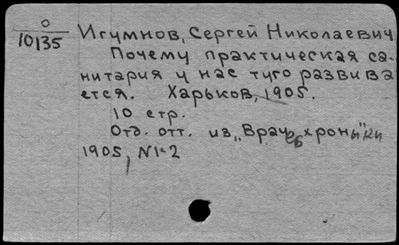 0
10135
Игумнов, Сергей Николаевич
Почему практическая са-
нитария у нас туго развива
ется. Харьков, 1905.
10 стр.
Отд. отт. из „Врачеб хроники"
1905, N 1-2